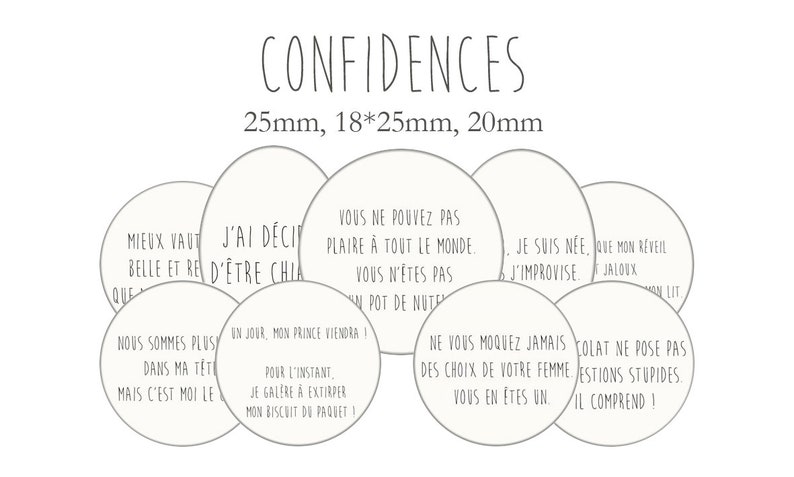 CONFIDENCES
25mm, 18*25mm, 20mm
MIEUX VAUT
BELLE ET RE
QUE
J'AI DÉCI
D'ÊTRE CHIA
VOUS NE POUVEZ PAS
PLAIRE À TOUT LE MONDE.
VOUS N'ÊTES PAS
UN POT DE NUTE
, JE SUIS NÉE,
J'IMPROVISE.
QUE MON RÉVEIL
T JALOUX
MON LIT.
NOUS SOMMES PLUSI
DANS MA TÊT
MAIS C'EST MOI LE
UN JOUR, MON PRINCE VIENDRA !
POUR L'INSTANT,
JE GALÈRE À EXTIRPER
MON BISCUIT DU PAQUET !
NE VOUS MOQUEZ JAMAIS
DES CHOIX DE VOTRE FEMME.
VOUS EN ÊTES UN.
COLAT NE POSE PAS
ESTIONS STUPIDES.
IL COMPREND !